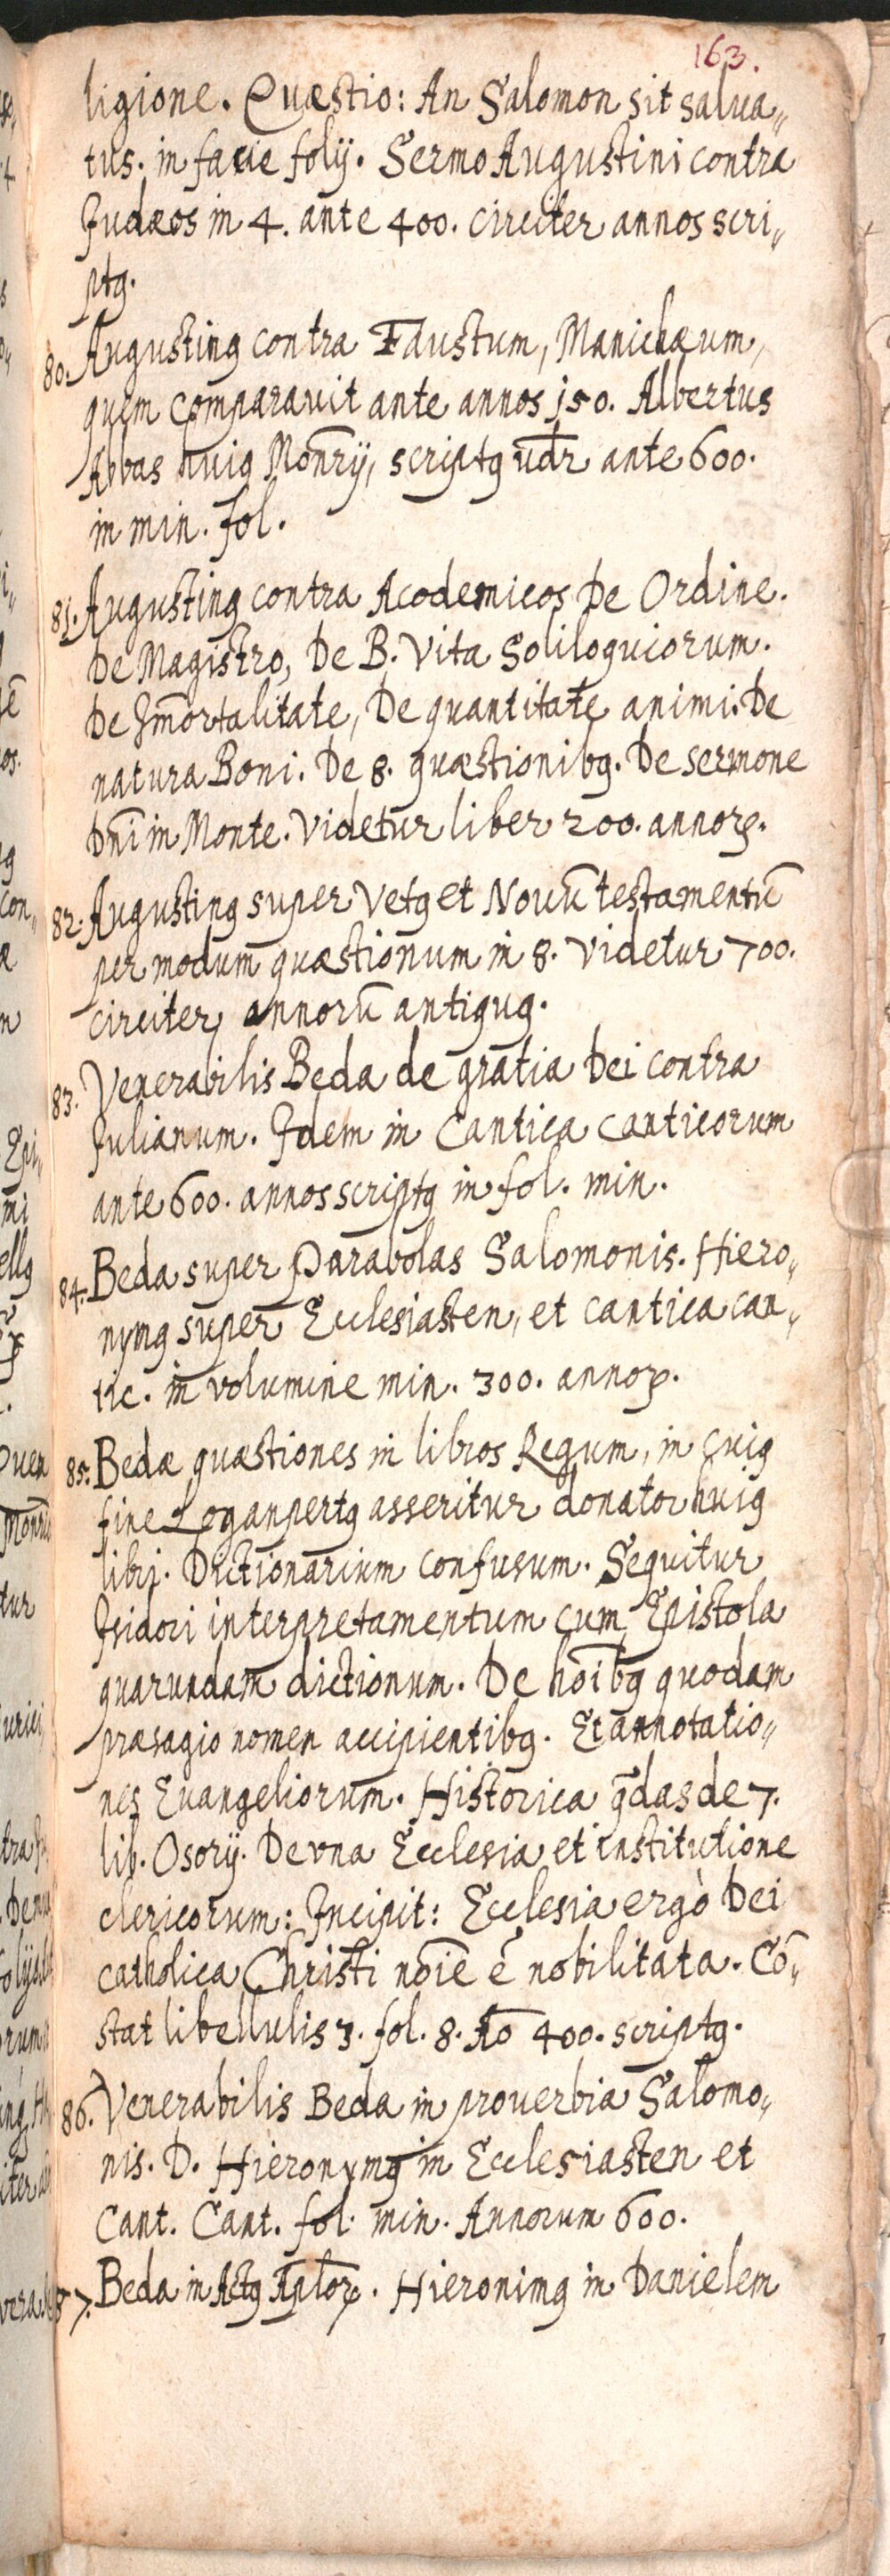 163.
ligione. Quæstio: An Salomon sit salua„
tus. in facie folij. Sermo Augustini contra
Judæos in 4. ante 400. circiter annos scri„
ptꝰ.
80. Augustinꝰ contra Faustum, Manichæum,
quem comparauit ante annos 150. Albertus
Abbas huiꝰ Monrij, scriptꝰ vdr̄ ante 600.
in min. fol.
81. Augustinꝰ contra Acodemicos De Ordine.
De Magistro, De B. Vita Soliloquiorum.
De Im̄ortalitate, De quantitate animi. De
natura Boni. De 8. quæstionibꝰ. De sermone
Dn̄i in Monte. Videtur liber 200. annoꝝ.
82. Augustinꝰ super Vetꝰ et Nouū testamentū
per modum quæstionum in 8. Videtur 700.
circiter annorū antiquꝰ.
83. Venerabilis Beda de gratia Dei contra
Julianum. Idem in Cantica Canticorum
ante 600. annos scriptꝰ in fol. min.
84. Beda super Parabolas Salomonis. Hiero„
nymꝰ super Ecclesiasten, et cantica can„
tic. in volumine min. 300. annoꝝ.
85. Bedæ quæstiones in libros Regum, in cuiꝰ
fine Loganpertꝰ asseritur donator huiꝰ
libri. Dictionarium confusum. Sequitur
Isidori interpretamentum cum Epistola
quarundam dictionum. De hōibꝰ quodam
præsagio nomen accipientibꝰ. Et annotatio„
nes Euangeliorum. Historica q̄das de 7.
lib. Osorij. De vna Ecclesia et institutione
clericorum: Incipit: Ecclesia ergò Dei
catholica Christi nōie ē nobilitata. Cō„
stat libellulis 3. fol. 8. Ao 400. scriptꝰ.
86. Venerabilis Beda in prouerbia Salomo„
nis. D. Hieronymꝰ in Ecclesiasten et
Cant. Cant. fol. min. Annorum 600.
87. Beda in Actꝰ Aploꝝ. Hieronimꝰ in Danielem